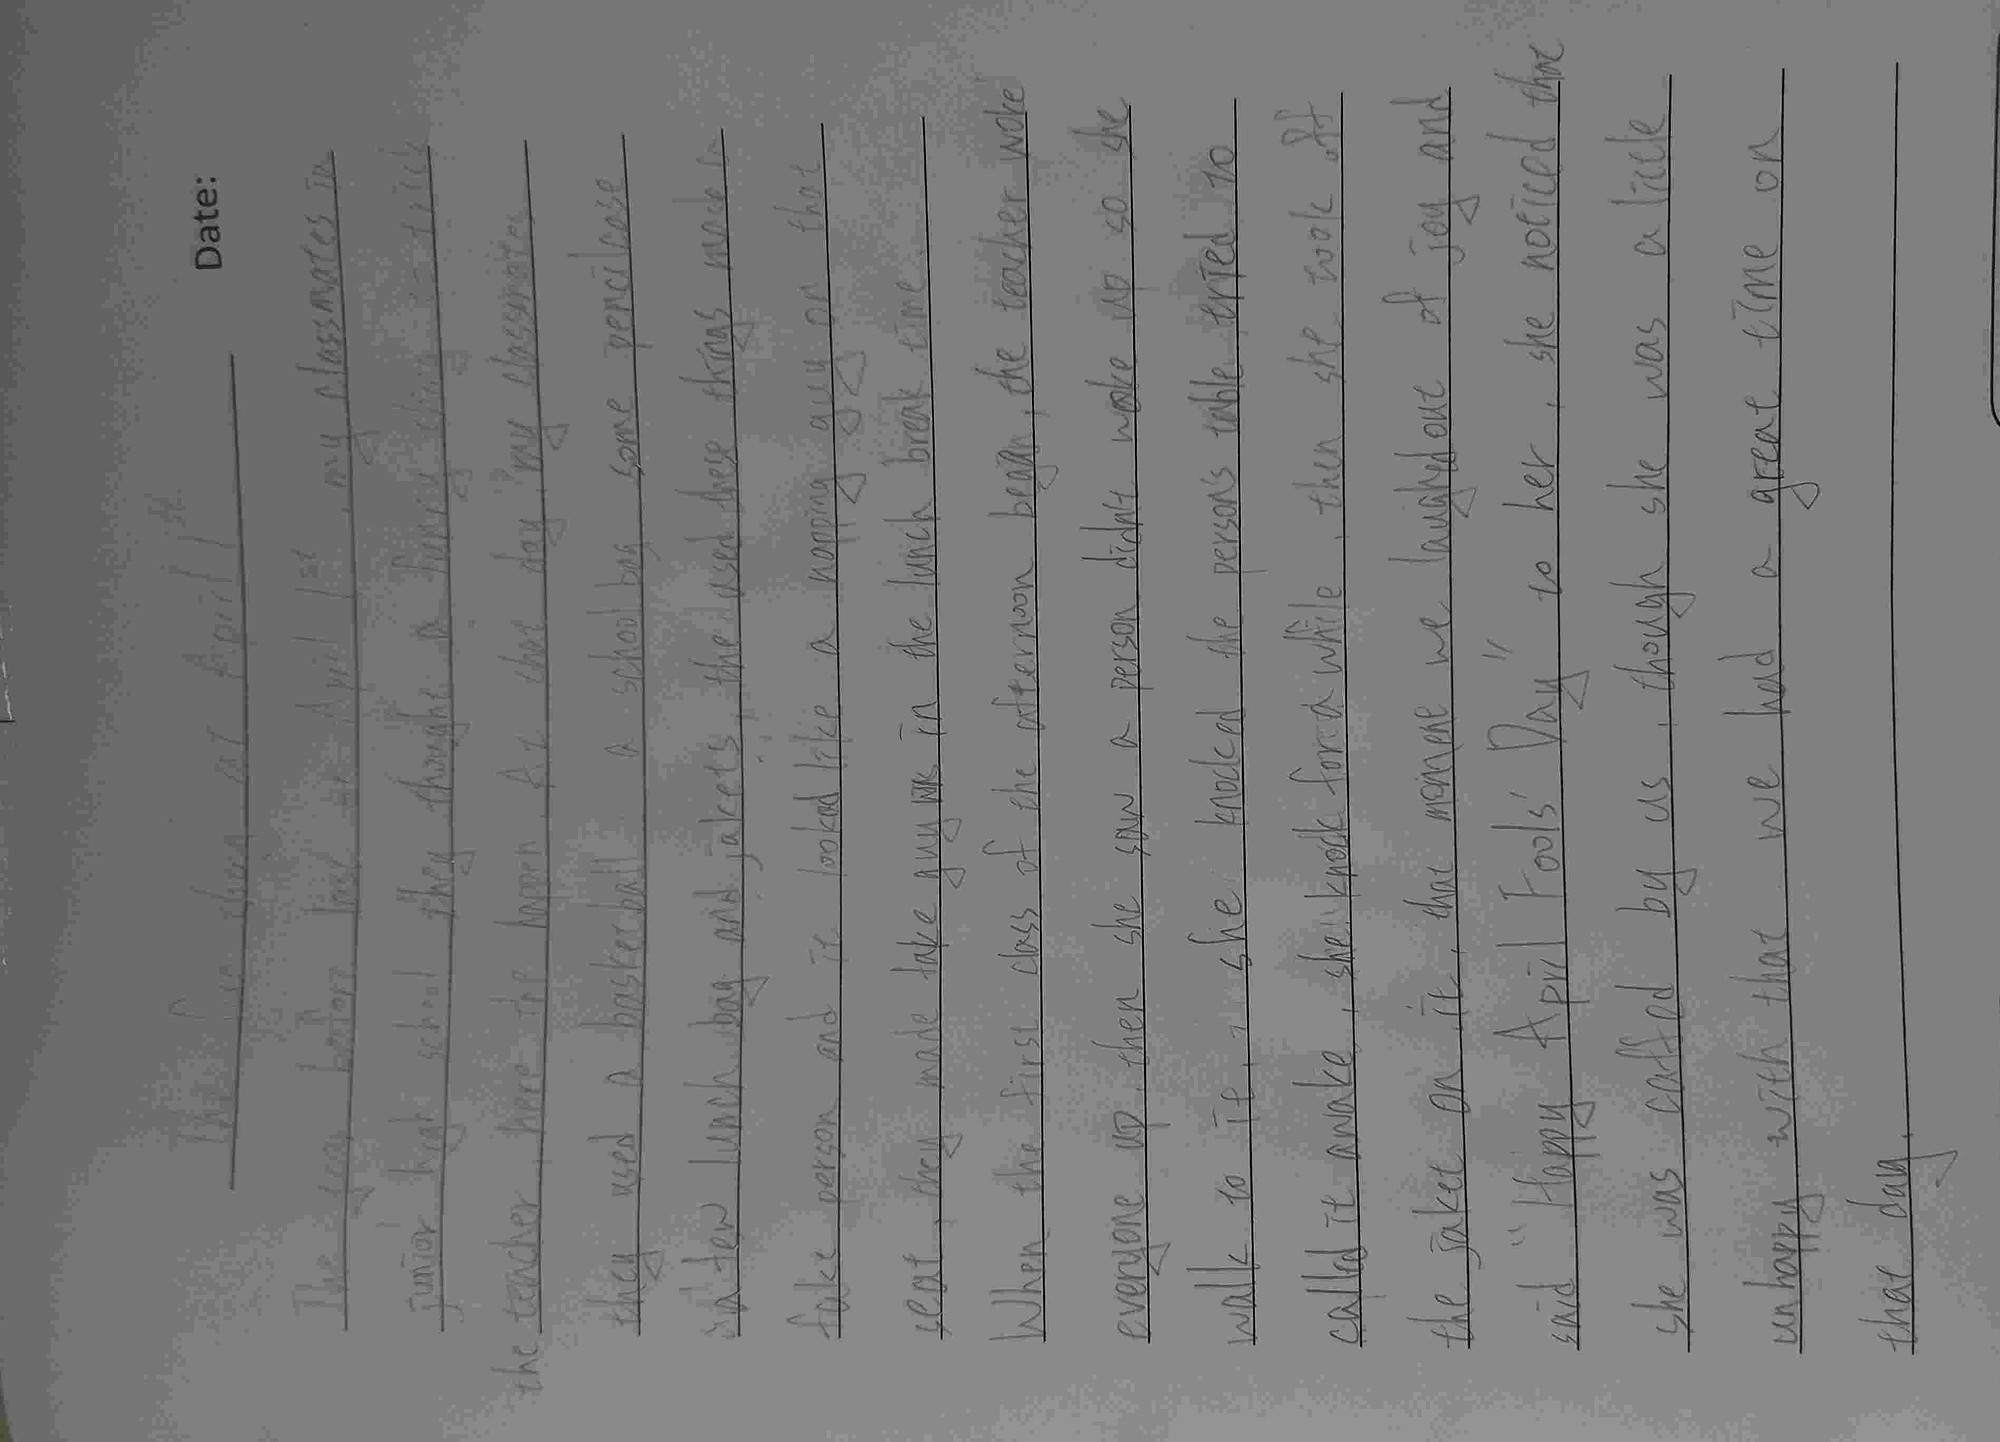 Date:
at April 1st
The year before last at April 1st, my classmates in
junior high school they thought a funny trick
the teacher, here to happen. At that day, my classmates
they used a basketball a school bag, some pencilcase
a few lunch bag and jakets, the used these things made
fake person and it looked like a napping guy on that
seat, they made fake guy was in the lunch break time.
When the first class of the afternoon began, the teacher woke
everyone up, then she saw a person didn't wake up so she
walk to it, she knocked the persons table tried to
called it awake, she knock for a while, then she took off
the jaket on it, that moment we laughed out of joy and
said "Happy April Fools' Day" to her, she noticed that
she was caffad by us, though she was a litle
unhappy with that we had a great time on
that day.